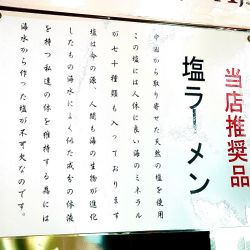 当店推奨品
塩ラーメン
中国から取り寄せた天然の塩を使用
この塩には人体に良い海のミネラル
が七十種類も入っております
塩は命の源、人間も海の生物が進化
したもの海水によく似た成分の体液
を持つ私達の体を維持する為には
海水から作った塩が不可欠なのです。